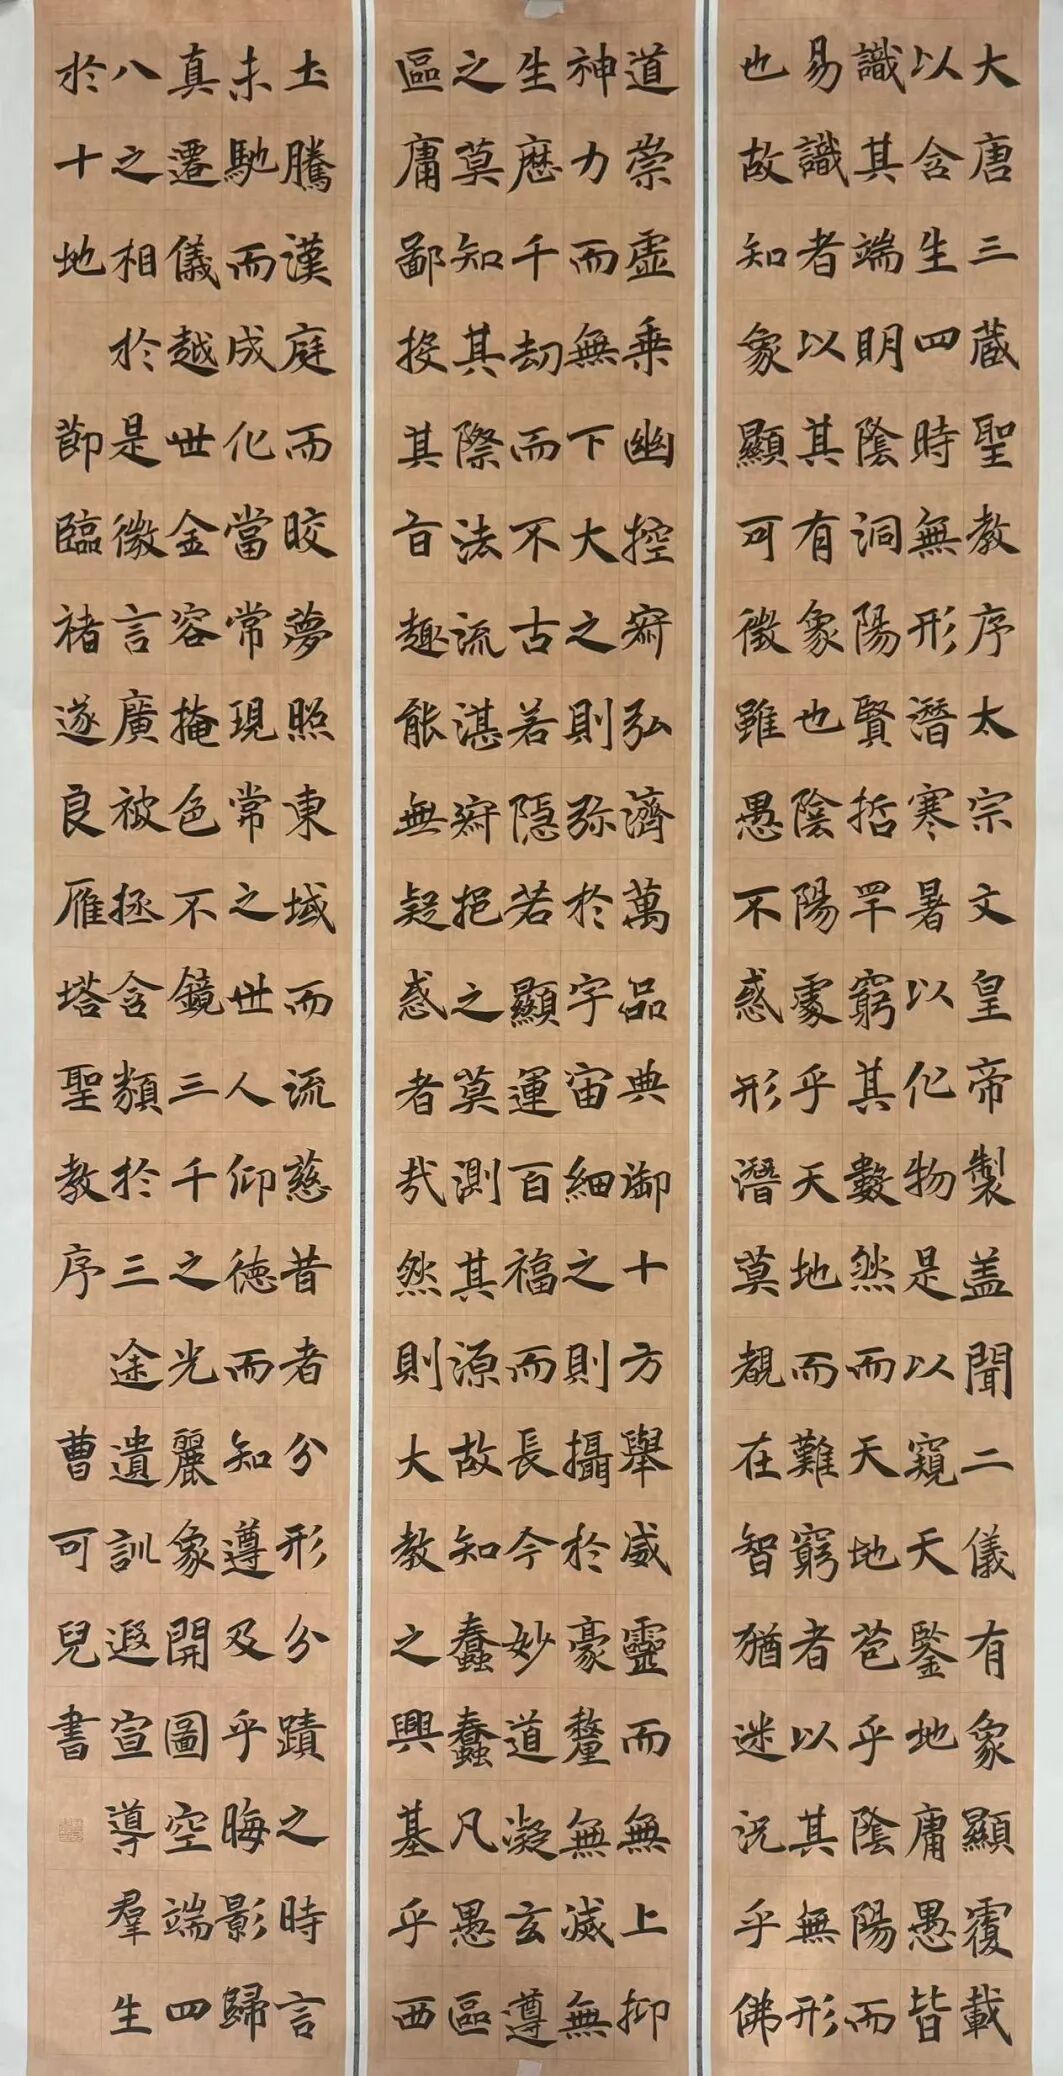 大唐三蔵聖教序太宗文皇帝製盖聞二儀有象顯覆載
以含生四時無形潛寒暑以化物是以窺天鑒地庸愚皆
識其端明陰洞陽賢哲罕窮其數然而天地苞乎陰陽而
易識者以其有象也陰陽處乎天地而難窮者以其無形
也故知象顯可徵雖愚不惑形潛莫覩在智猶迷況乎佛
道崇虛乗幽控寂弘濟萬品典御十方舉威靈而無上抑
神力而無下大之則弥於宇宙細之則攝於豪釐無滅無
生歷千劫而不古若隱若顯運百福而長今妙道凝玄遵
之莫知其際法流湛寂挹之莫測其源故知蠢蠢凡愚區
區庸鄙投其旨趣能無疑惑者哉然則大教之興基乎西
土騰漢庭而皎夢照東域而流慈昔者分形分蹟之時言
未馳而成化當常現常之世人仰德而知遵及乎晦影歸
真遷儀越世金容掩色不鏡三千之光麗象開圖空端四
八之相於是微言廣被拯含類於三途遺訓遐宣導羣生
於十地 節臨褚遂良雁塔聖教序 曹可兒書